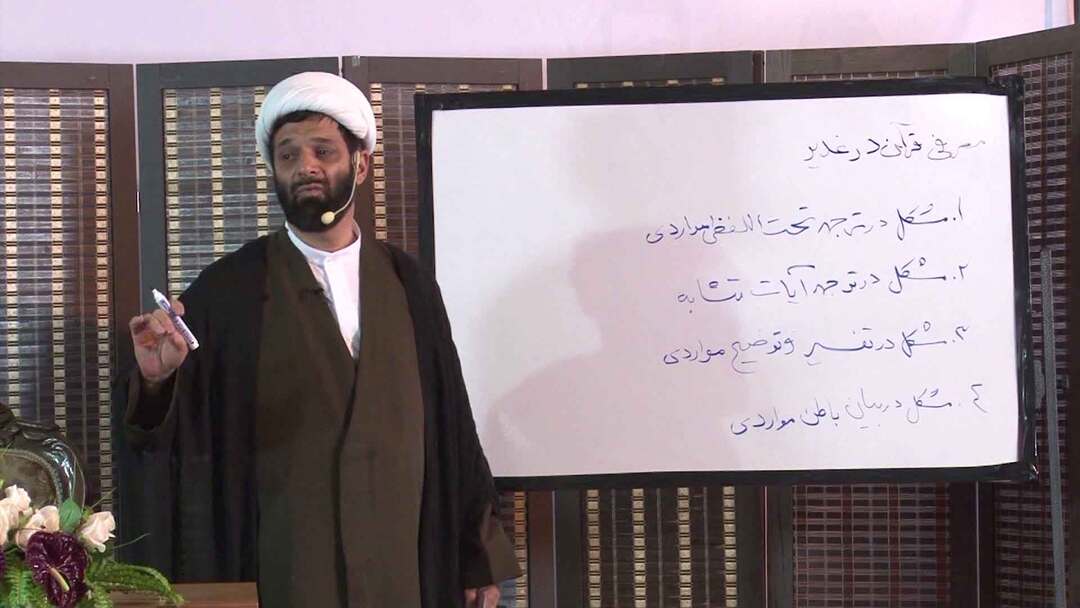 معرفی قرآن در غدیر
۱. مشکل در ترجمه تحت اللفظی مواردی
۲. مشکل در توجه آیات متشابه
۳. مشکل در تفسیر و توضیح مواردی
۴. مشکل در بیان باطن مواردی